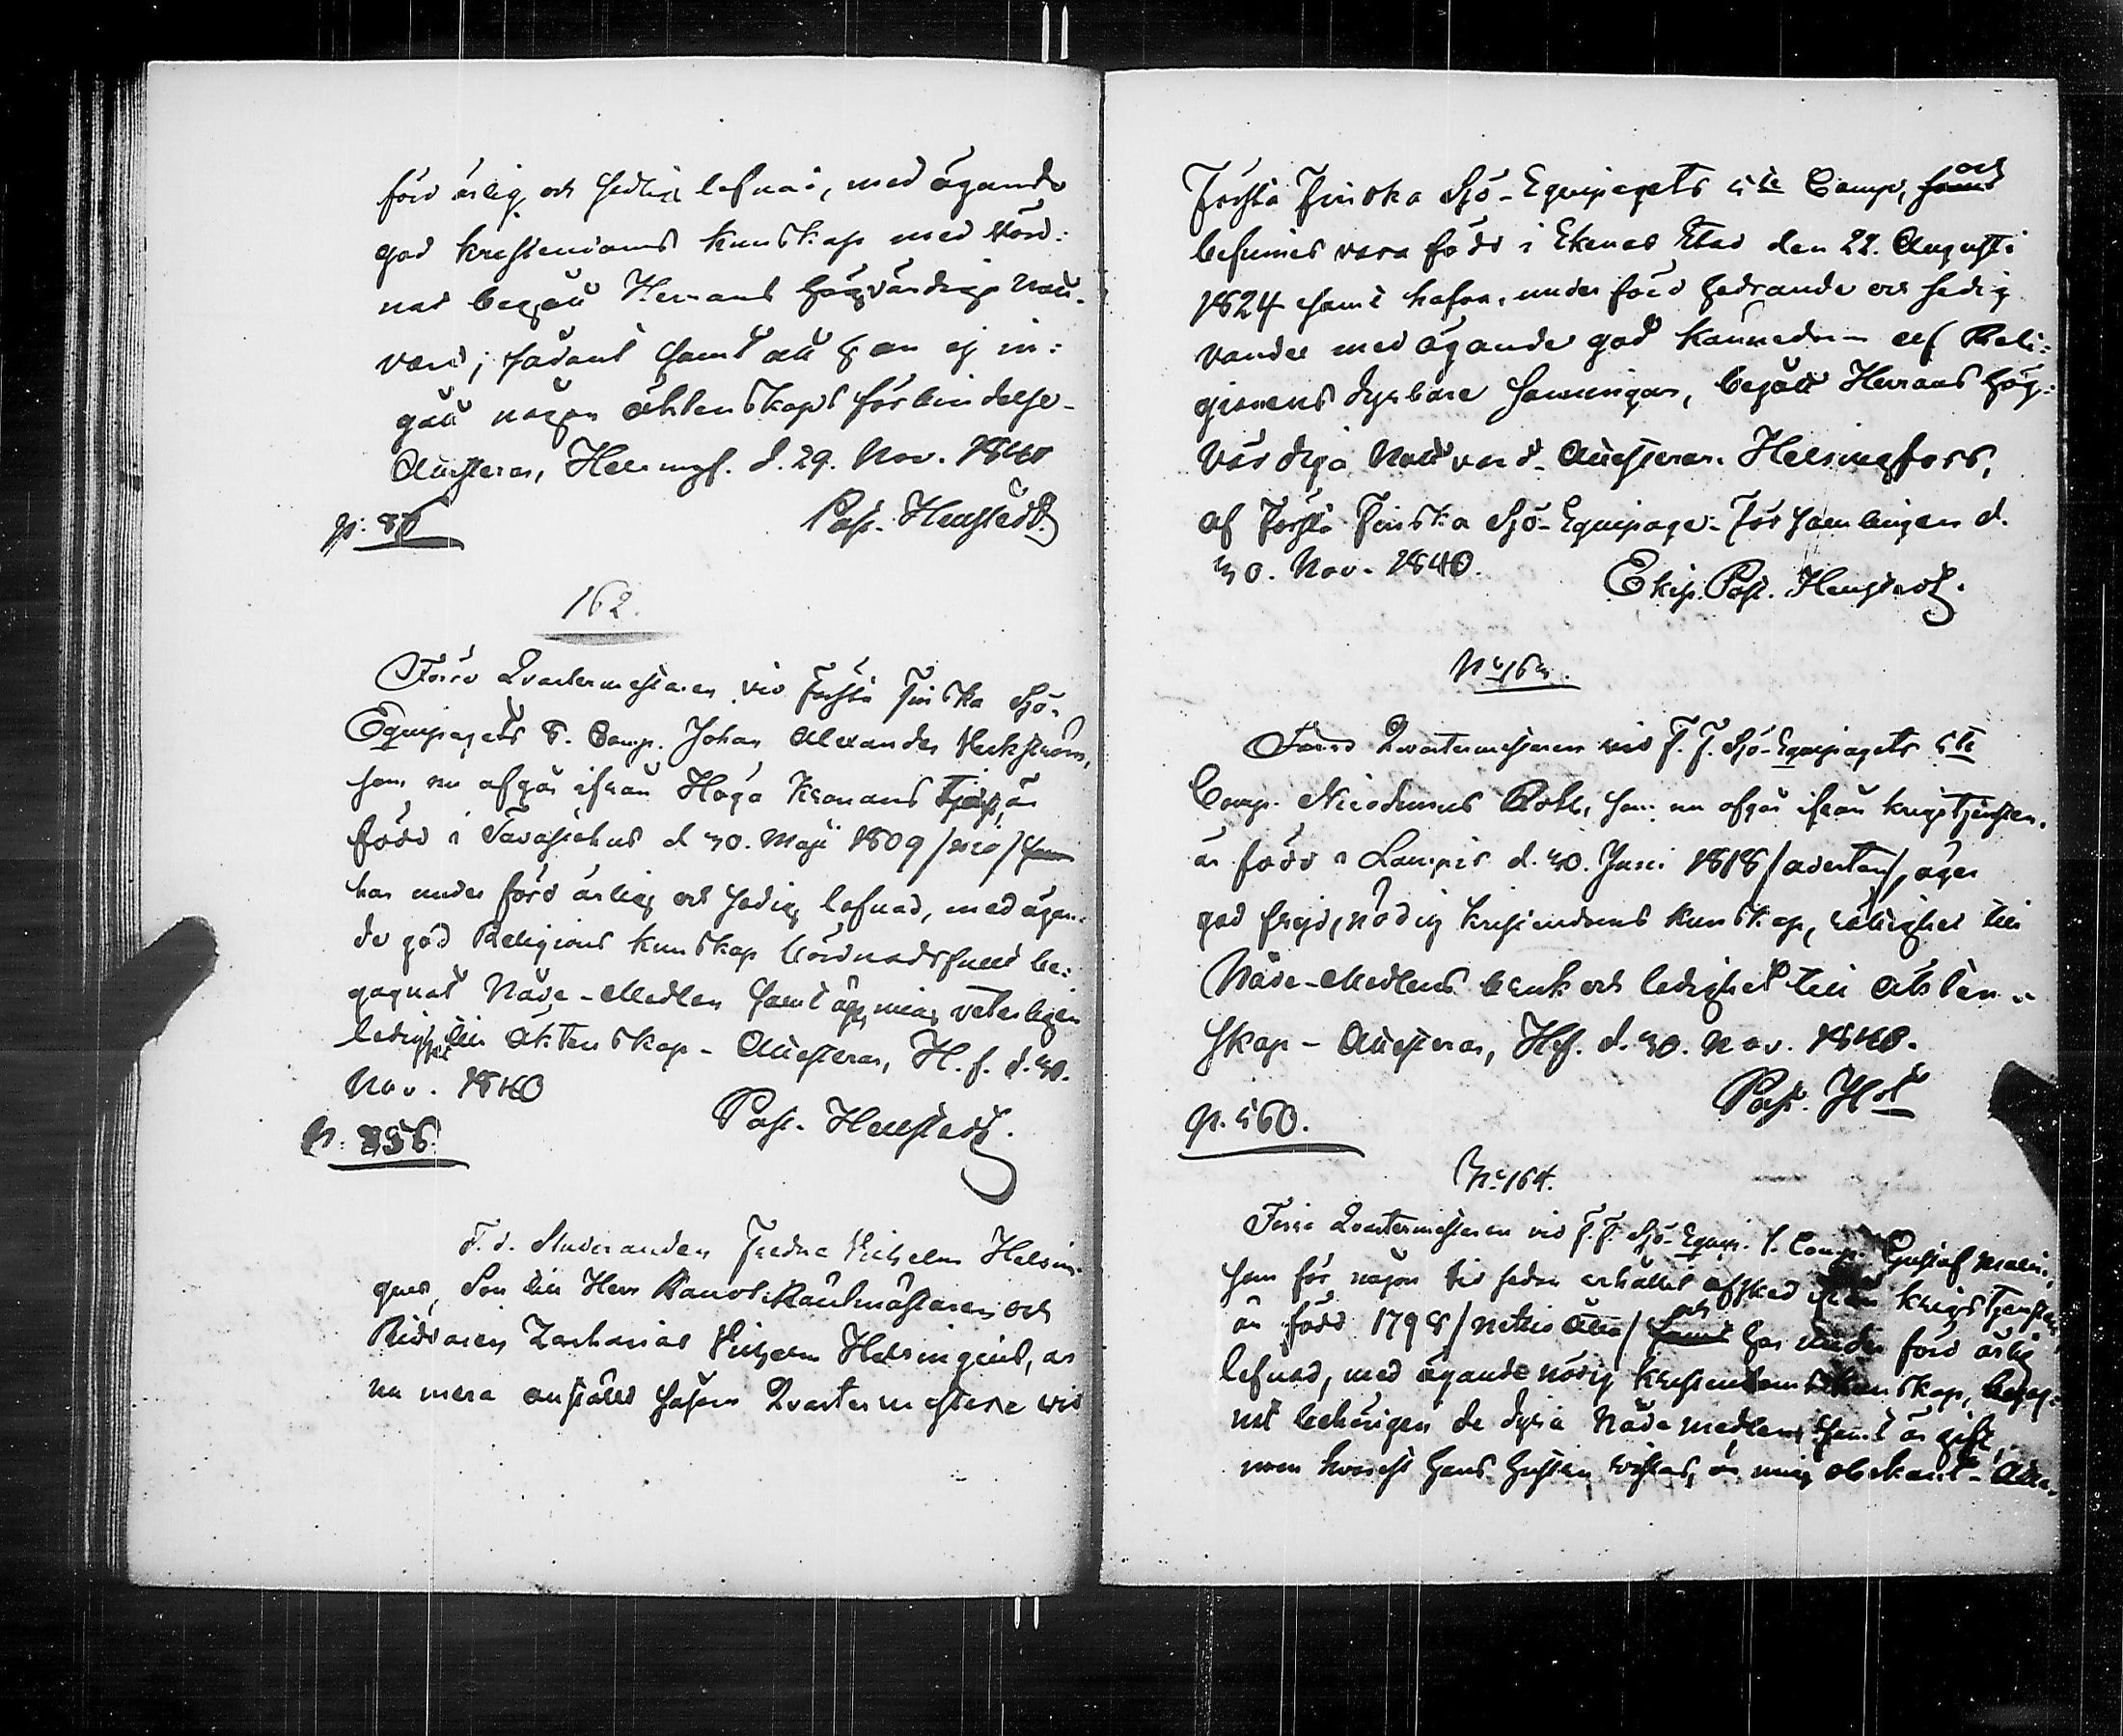 förd ärlig och sedlig lefnad, med ägande
god kristendoms kunskap med vörd:
nad begått Herrans högvärdiga natt-
vard; sådant samt att han ej in:
gått någon äktenskaps förbindelse-
Attesteras, Helsingf. d. 29. Nov. 1840
Past. Hengstedt
p. 86
162.
Förre Qvartermästaren vid Första Finska Sjö-
Equipagets 8. Comp. Johan Alexander
som nu afgår ifrån Höga Kronans tjenst, är
född i Tavastehus d 30. Maji 1809 /nio/ samt
har under förd ärlig och sedig lefnad, med ägan-
de god Religions kunskap vördnadsfullt be:
gagnat Nåde-Medlen samt äger mig veterligen
ledighet till Äktenskap - Attesteras, H. f. d. 30.
Nov. 1840
Past. Hengstedt.
p. 356.
F. d. Studeranden Fredric Vilhelm Helsin-
gius, Son till Herr Räntmästaren och
Riddaren Zacharias Vilhelm Helsingius, är
nu mera anställd såsom Qvartermästare vid
Första Finska Sjö-Equipagets 5te Comp, samt och
befinnes vara född i Ekenäs Stad den 22. Augusti
1824 samt hafva, under förd hedrande och sedig
vandel med ägande god kännedom af Reli:
gionens dyrbara sanningar, begått Herrans hög:
värdiga Nattvard. Attesteras. Helsingfors,
af Första Finska Sjö-Equipage-Församlingen d.
30. Nov. 1840.
Ekip. Past. Hengstedt.
No 163.
Förre Qvartermästaren vid F. F. Sjö-Equipagets 5te
Comp. Nicodemus som nu afgår ifrån krigstjensten,
är född i Lampis d. 30. Juni 1818 /aderton/, äger
god frejd, nödig kristendoms kunskap, rättighet till
Nåde-Medlens bruk och ledighet till äkten-
skap - Attesteras, Hfs. d. 30. Nov. 1840.
Past. Hdt
p. 560.
No 164.
Förre Qvartermästaren vid F. F. Sjö-Equip. 1. Comp. Gustaf Malm,
som för någon tid sedan erhållit afsked ifrån krigstjensten,
är född 1798 /nittio åtta/ samt och har under förd ärlig
lefnad, med ägande nödig kristendoms kunskap, begag-
nat behörigen de dyra Nåde medlen, samt är gift,
men hvarest hans hustru vistas, är mig obekant - Atte-